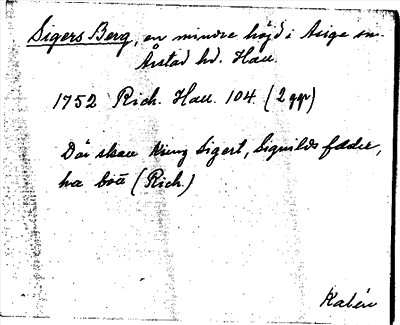 Sigers Berg, en mindre höjd i Asige sn.
Årstad hd. Hall.
1752 Rich. Hall. 104 (2 ggr)
Där skall Kung Sigert, Signilds fader,
ha bott (Rich.)
Kalén